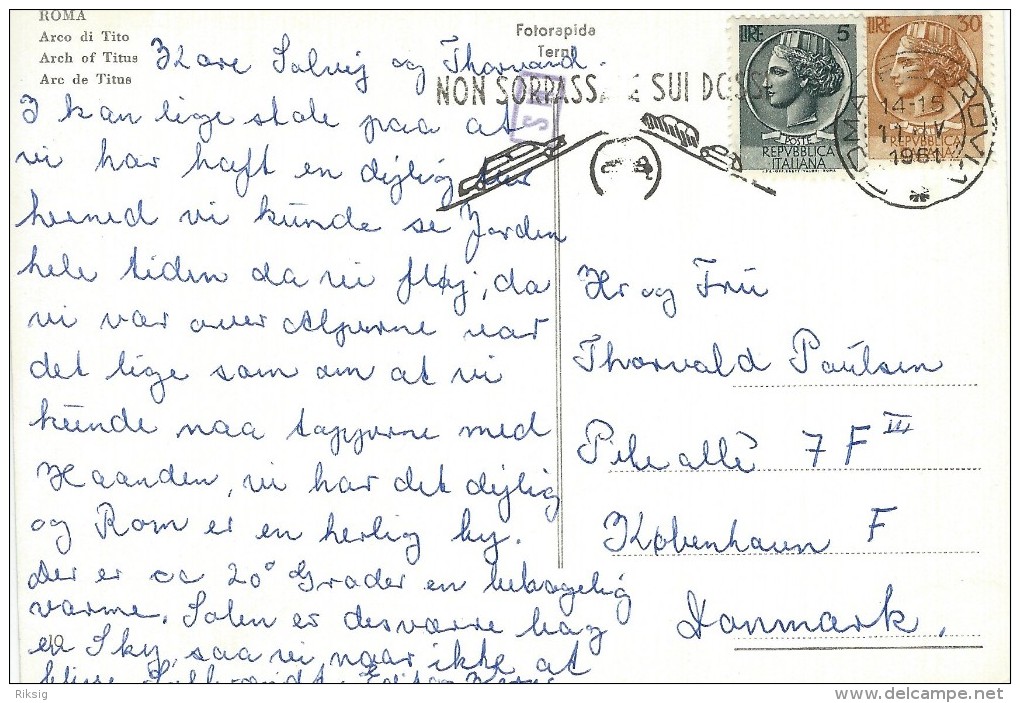 ROMA
Arco di Tito
Arch of Titus
Arc de Titus
Fotorapida
Terni
LIRE 5
POSTE
REPVBBLICA
ITALIANA
LIRE 30
REPVBBLICA
NON SORPASSARE SUI DOSSI
ROMA FERROVIA
14-15
11 IV
1961
Kære Solvej og Thorvand.
I kan lige stole paa at
vi har haft en dejlig tur
herned vi kunde se Jorden
hele tiden da vi fløj, da
vi var over Alperne var
det lige som om at vi
kunde naa toppene med
Haanden, vi har det dejlig
og Rom er en herlig by.
Der er ca 20° Grader en behagelig
varme, Solen er desværre bag
en Sky, saa vi naar ikke at
blive
Hr og Frü
Thorvald Paulsen
Pile allé 7 F III
København F
Danmark.
Riksig
delcampe.net